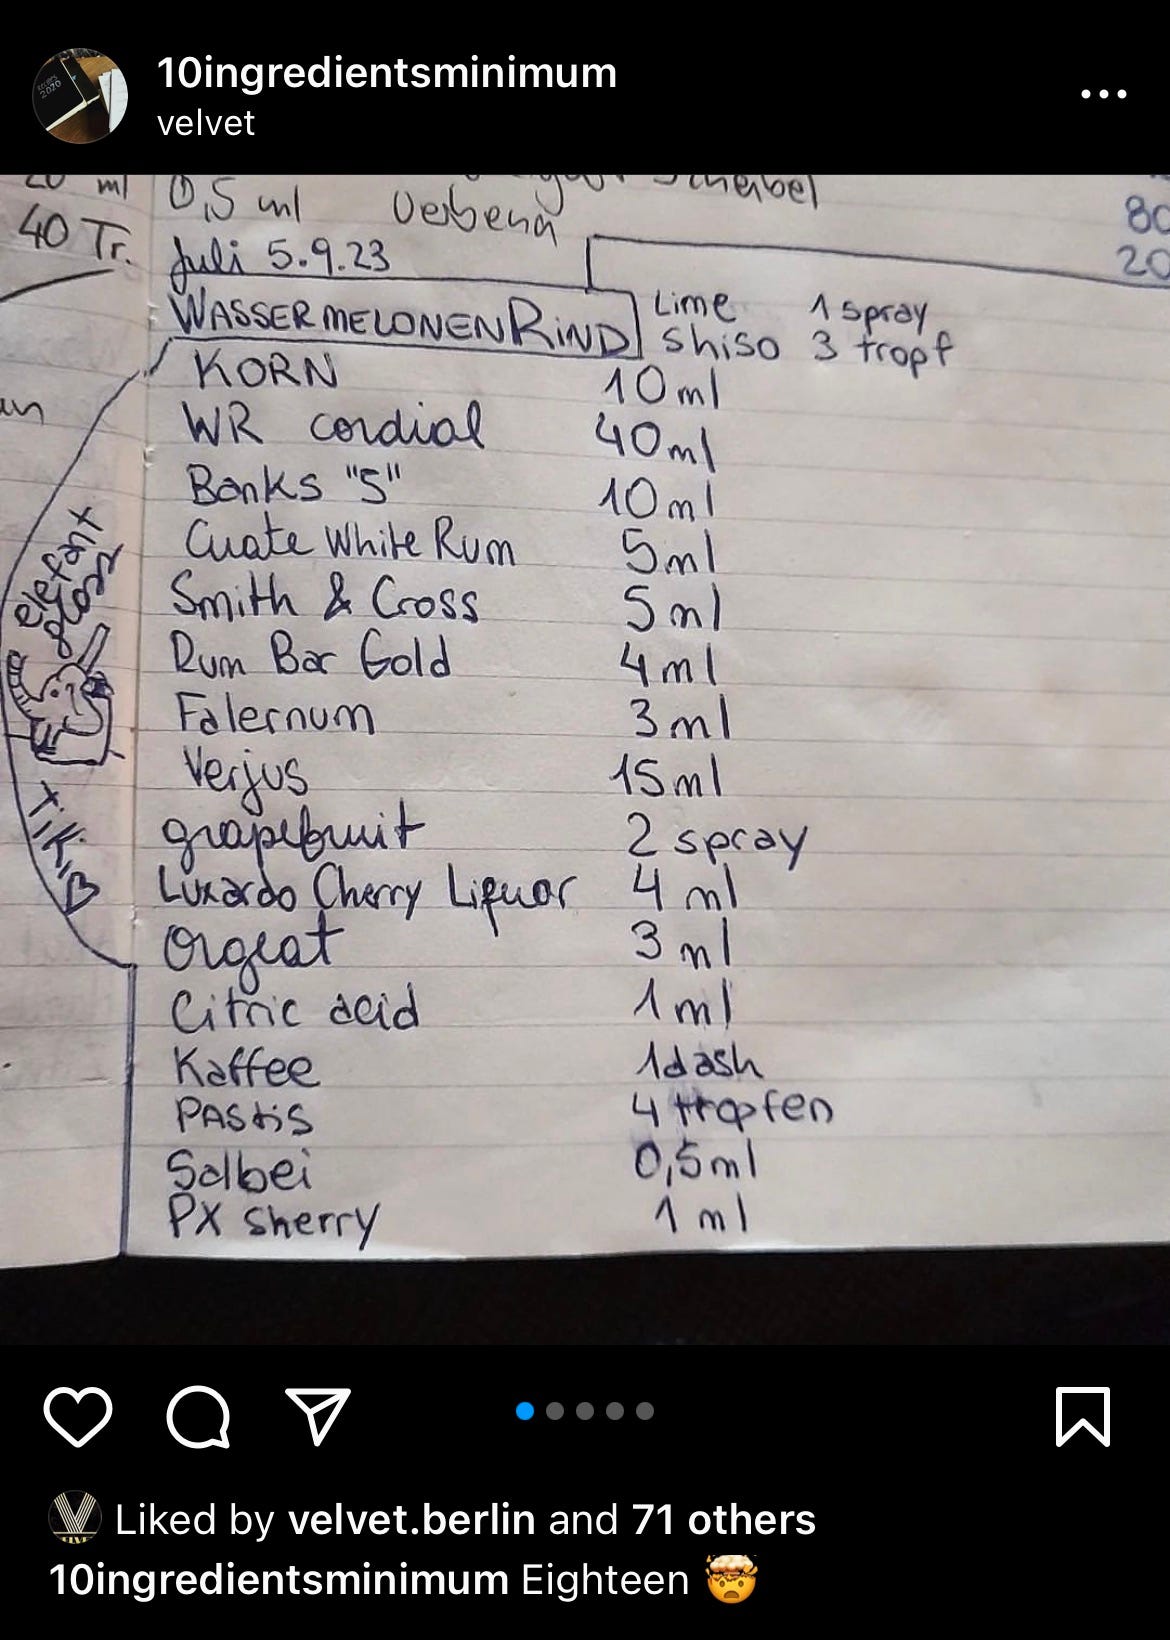 10ingredientsminimum
velvet
20 ml
40 Tr.
0,5 ml Verbena
80
20
Juli 5.9.23
WASSERMELONENRiND
Lime 1 spray
Shiso 3 tropf
KORN 10 ml
WR cordial 40 ml
Banks "5" 10 ml
Cuate White Rum 5 ml
Smith & Cross 5 ml
Rum Bar Gold 4 ml
Falernum 3 ml
Verjus 15 ml
grapefruit 2 spray
Luxardo Cherry Liquor 4 ml
Orgeat 3 ml
Citric acid 1 ml
Kaffee 1 dash
PAStiS 4 tropfen
Salbei 0,5 ml
PX Sherry 1 ml
elefant
glass
T.i.K.B
Liked by velvet.berlin and 71 others
10ingredientsminimum Eighteen 🤯